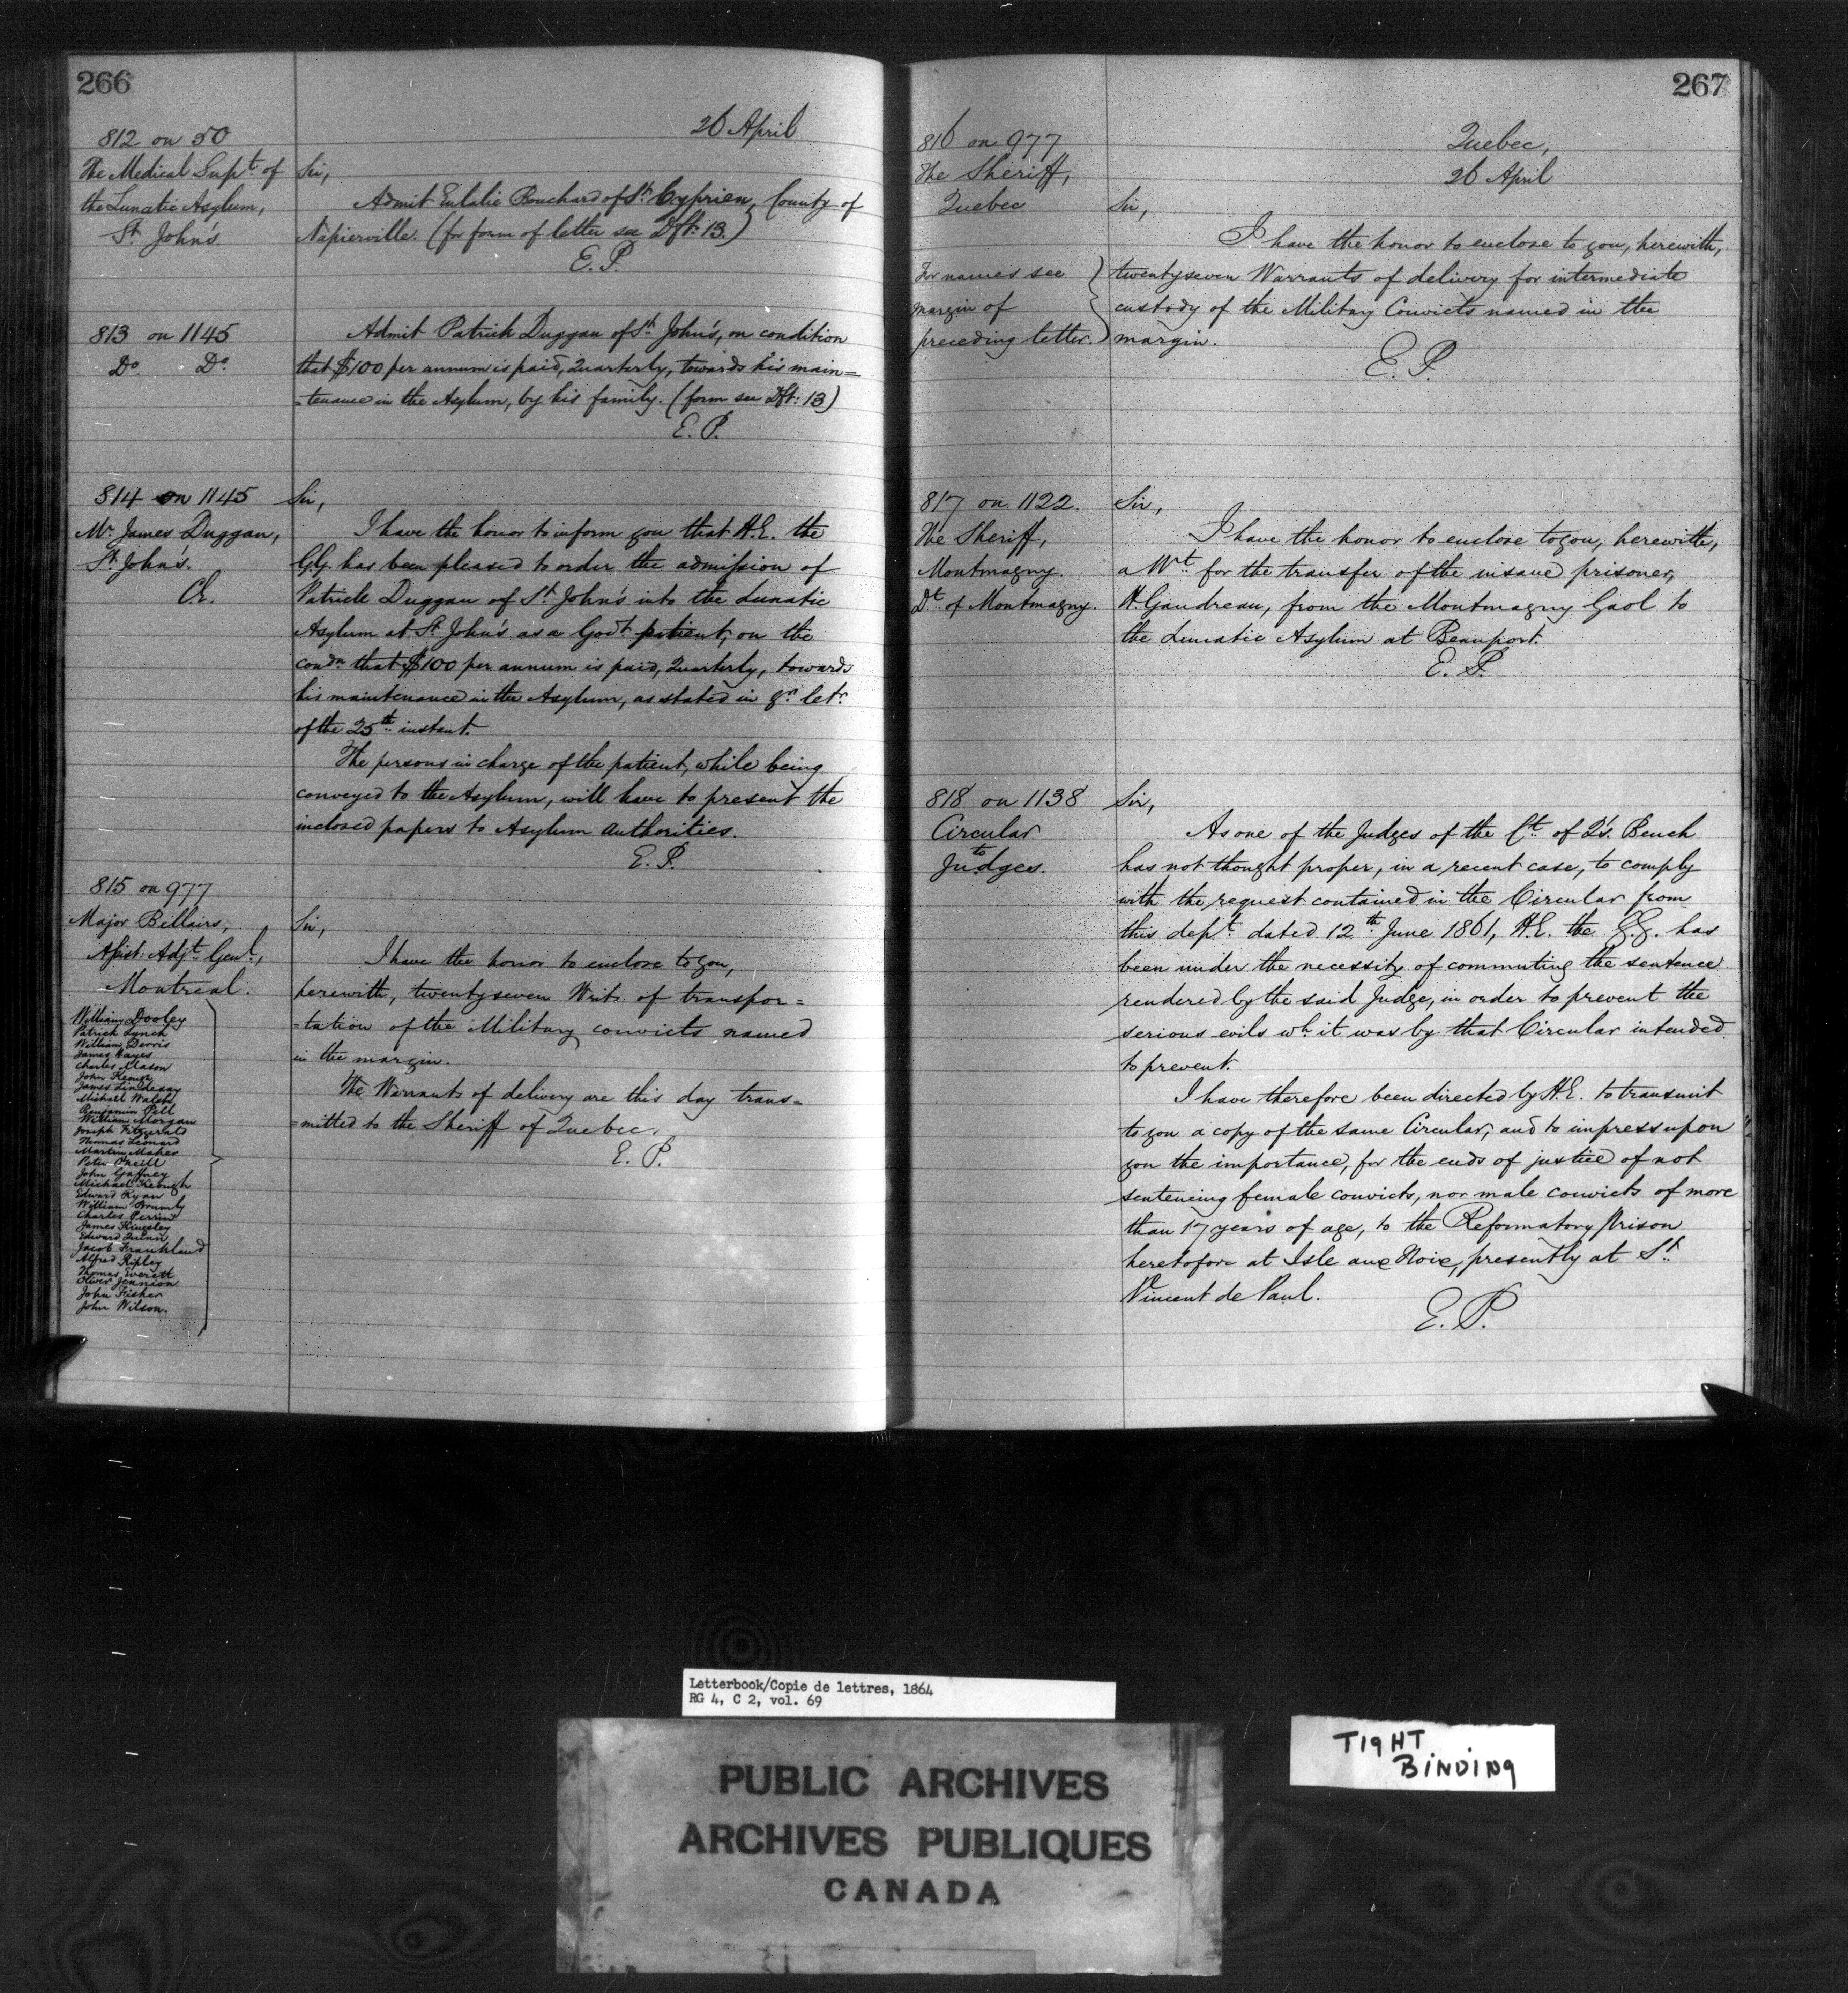 266
26 April
812 on 50
The Medical Supt. of
the Lunatic Asylum,
St. John's.
Sir,
Admit Eulalie Bouchard of St. Cyprien, County of
Napierville. (for form of letter see Dft: 13.)
E. P.
813 on 1145
Do. Do.
Admit Patrick Duggan of St. John's, on condition
that $100 per annum is paid, Quarterly, towards his main=
=tenance in the Asylum, by his family. (form see Dft: 13)
E. P.
814 on 1145
Mr. James Duggan,
St. John's.
C.E.
Sir,
I have the honor to inform you that H.E. the
G.G. has been pleased to order the admission of
Patrick Duggan of St. John's into the Lunatic
Asylum at St. John's as a Govt. patient, on the
condn. that $100 per annum is paid, Quarterly, towards
his maintenance in the Asylum, as stated in yr. letr.
of the 25th. instant.
The persons in charge of the patient, while being
conveyed to the Asylum, will have to present the
inclosed papers to Asylum authorities.
E. P.
815 on 977
Major Bellairs,
Assist: Adjt. Genl.,
Montreal.
William Dooley
Patrick Lynch
William Derris
James Hayes
Charles Mason
John Keough
James Lindesay
Michael Walsh
Benjamin Pell
William Morgan
Joseph Fitzgerald
Thomas Leonard
Martin Maher
Peter O'neill
John Gaffney
Michael Keough
Edward Ryan
William Brumby
Charles Perrin
James Kingsley
Edward Quinn
Jacob Frankland
Alfred Ripley
Thomas Everett
Oliver Jennion
John Fisher
John Wilson.
Sir,
I have the honor to enclose to you,
herewith, twentyseven Writs of transpor=
=tation of the Military convicts named
in the margin.
The Warrants of delivery are this day trans=
=mitted to the Sheriff of Quebec.
E. P.
267
Quebec,
26 April
816 on 977
The Sheriff,
Quebec
For names see
margin of
preceding letter.
Sir,
I have the honor to enclose to you, herewith,
twentyseven Warrants of delivery for intermediate
custody of the Military Convicts named in the
margin.
E. P.
817 on 1122.
The Sheriff,
Montmagny.
Dt. of Montmagny.
Sir,
I have the honor to enclose to you, herewith,
a Wt. for the transfer of the insane prisoner,
H. Gaudreau, from the Montmagny Gaol to
the Lunatic Asylum at Beauport.
E. P.
818 on 1138
Circular
to
Judges.
Sir,
As one of the Judges of the Ct. of Q's. Bench
has not thought proper, in a recent case, to comply
with the request contained in the Circular from
this dept. dated 12th June 1861, H.E. the G.G. has
been under the necessity of commuting the sentence
rendered by the said Judge, in order to prevent the
serious evils wh. it was by that Circular intended
to prevent.
I have therefore been directed by H.E. to transmit
to you a copy of the same Circular, and to impress upon
you the importance, for the ends of justice of not
sentencing female convicts, nor male convicts of more
than 17 years of age, to the Reformatory Prison
heretofore at Isle aux Noix, presently at St.
Vincent de Paul.
E. P.
Letterbook/Copie de lettres, 1864
RG 4, C 2, vol. 69
PUBLIC ARCHIVES
ARCHIVES PUBLIQUES
CANADA
TIGHT
BINDING